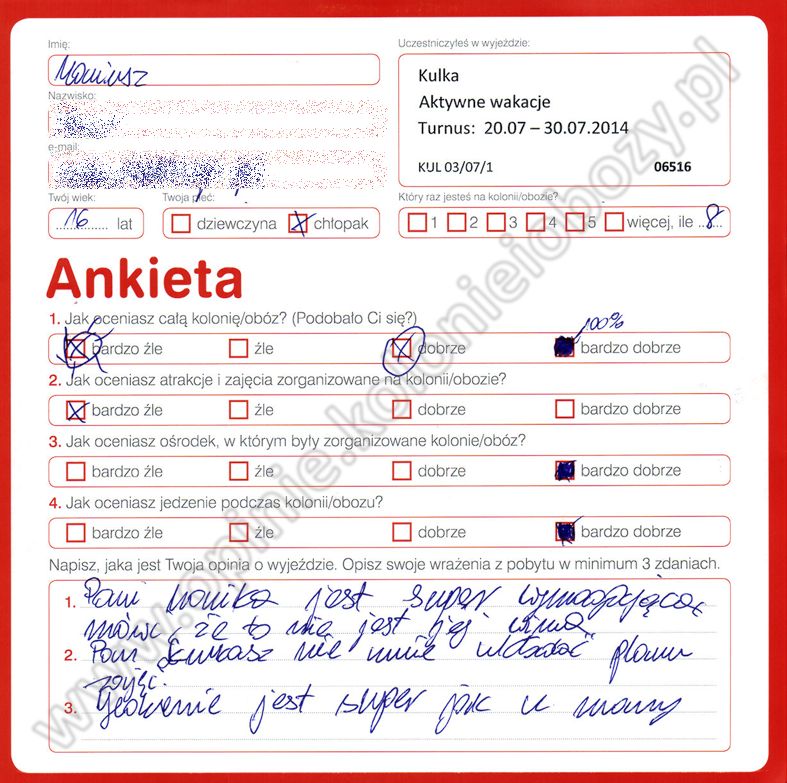 Imię:
Mariusz
Uczestniczyłeś w wyjeździe:
Kulka
Aktywne wakacje
Turnus: 20.07 – 30.07.2014
KUL 03/07/1 06516
Nazwisko:
e-mail:
Twój wiek:
16 lat
Twoja płeć:
dziewczyna X chłopak
Który raz jesteś na kolonii/obozie?
1 2 3 4 5 więcej, ile 8
Ankieta
1. Jak oceniasz całą kolonię/obóz? (Podobało Ci się?)
100%
bardzo źle źle dobrze bardzo dobrze
2. Jak oceniasz atrakcje i zajęcia zorganizowane na kolonii/obozie?
bardzo źle źle dobrze bardzo dobrze
3. Jak oceniasz ośrodek, w którym były zorganizowane kolonie/obóz?
bardzo źle źle dobrze bardzo dobrze
4. Jak oceniasz jedzenie podczas kolonii/obozu?
bardzo źle źle dobrze bardzo dobrze
Napisz, jaka jest Twoja opinia o wyjeździe. Opisz swoje wrażenia z pobytu w minimum 3 zdaniach.
1. Pani Monika jest super wymagająca,
mówi, że to nie jest jej wina
2. Pan Łukasz nie umie układać planu
zajęć
3. jest super jak u mamy
www.opinie.kolonieiobozy.pl